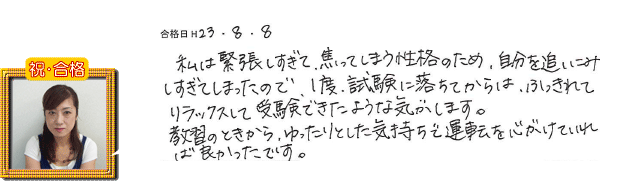 合格日 H23・8・8
祝・合格
私は緊張しすぎて、焦ってしまう性格のため、自分を追いこみ
しすぎてしまったので、1度、試験に落ちてからは、ふっきれて
リラックスして受験できたような気がします。
教習のときから、ゆったりとした気持ちで運転を心がけていれ
ば良かったです。